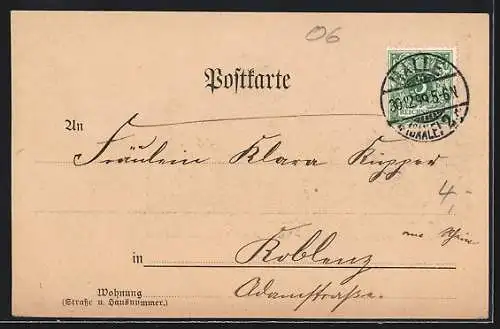 06
Postkarte
HALLE
30.12.99.5-6N
(SAALE) 2.
An
Fräulein Klara Küpper
4,-
in Koblenz
Wohnung
(Straße u. Hausnummer.)
Adamstraße.